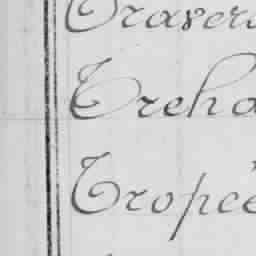 Travers
Treha
Tropée